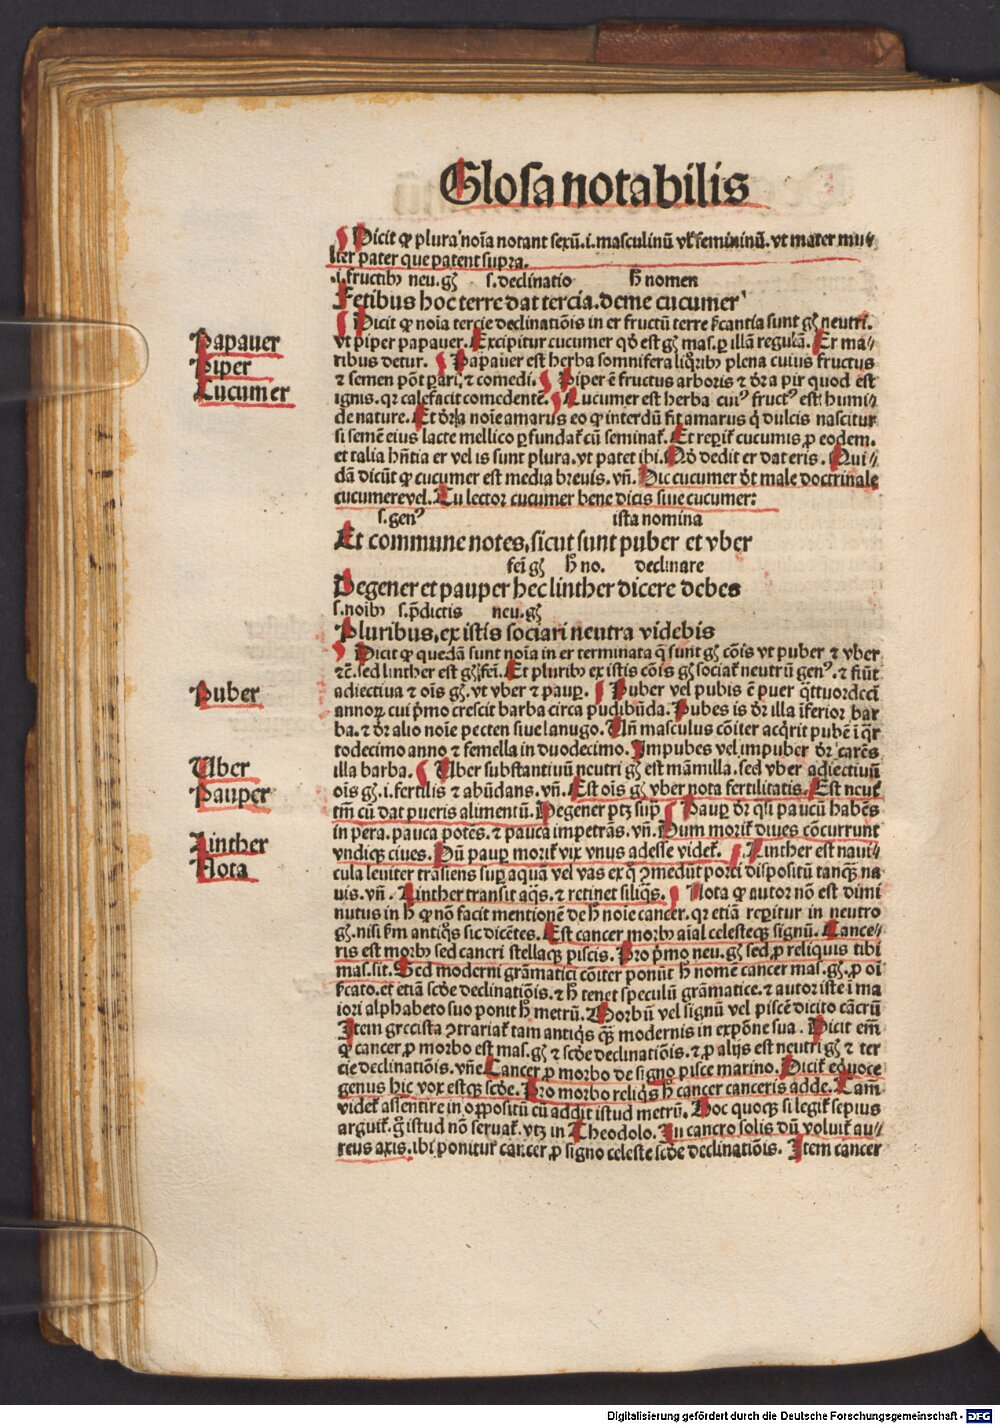 Glosa notabilis
Dicit ꝙ plura noīa notant sexū.i.masculinū vl' femininū.vt mater mu⸗
lier pater que patent supra.
.i.fructibꝰ neu.gn̄ s.declinatio hͦ nomen
Fetibus hoc terre dat tercia.deme cucumer
Dicit ꝙ noīa tercie declinatiōis in er fructū terre scantia sunt gn̄ neutri.
vt piper papauer. Excipitur cucumer qd' est gn̄ mas.ꝑ illā regulā. Er ma⸗
ribus detur. Papauer est herba somnifera liq̄ribꝰ plena cuius fructus
⁊ semen pōt parari ⁊ comedi. Piper ē fructus arboris ⁊ dr̄ a pir quod est
ignis.qꝛ calefacit comedentē. Cucumer est herba cuiꝰ fructꝰ est humi⸗
de nature. Et dr̄ noīe amarus eo ꝙ interdū fit amarus q̇ dulcis nascitur
si semē eius lacte mellico ꝑfundat᷑ cū seminat᷑. Et reꝑit᷑ cucumis ꝓ eodem.
et talia hn̄tia er vel is sunt plura.vt patet ibi. Qd' dedit er dat eris. Qui⸗
dā dicūt ꝙ cucumer est media breuis.vn̄. Dic cucumer dꝫ male doctrinale
cucumereuel. Tu lector cucumer bene dicis siue cucumer:
s.genꝰ ista nomina
Et commune notes, sicut sunt puber et vber
fei gn̄ hͦ no. declinare
Degener et pauper hec linther dicere debes
s.noībꝰ s.p̄dictis neu.gn̄
Pluribus, ex istis sociari neutra videbis
Dicit ꝙ quedā sunt noīa in er terminata q̄ sunt gn̄ cōis vt puber ⁊ vber
⁊c̄. sed linther est gn̄ fei. Et pluribꝰ ex istis cōis gn̄ociat᷑ neutrū genꝰ. ⁊ fiūt
adiectiua ⁊ oīs gn̄. vt vber ⁊ pauꝑ. Puber vel pubis ē puer q̄ttuordeci
annoꝝ cui p̄mo crescit barba circa pudibūda. Pubes is dr̄ illa īferior bar
ba.⁊ dr̄ alio noīe pecten siue lanugo. Vn̄ masculus cōiter acq̄rit pubē ī q̄r
todecimo anno ⁊ femella in duodecimo. Impubes vel impuber dr̄ carēs
illa barba. Vber substantiuū neutri gn̄ est māmilla.sed vber adiectiuū
oīs gn̄.i.fertilis ⁊ abūdans.vn̄. Est oīs gn̄ vber nota fertilitatis. Est neut᷑
tm̄ cū dat pueris alimentū. Degener ptꝫ sup̄ Pauꝑ dr̄ q̄si paucū habēs
in pera.pauca potēs.⁊ pauca impetrās.vn̄. Dum morit᷑ diues cōcurrunt
vndiqꝫ ciues. Dū pauꝑ morit᷑ vix vnus adesse videt᷑. Linther est naui⸗
cula leuiter trāsiens suꝑ aquā vel vas ex q̇ ꝯmedūt porci dispositū tanqꝫ na
uis.vn̄. Linther transit aq̄s.⁊ retinet siliq̄s. Nota ꝙ autor nō est dimi
nutus in hͦ ꝙ non facit mentionē de hͦ noīe cancer.qꝛ etiā reꝑitur in neutro
gn̄.nisi s̄m antiq̄s sic dicētes. Est cancer morbꝰ aīal celesteqꝫ signū. Cance⸗
ris est morbꝰ sed cancri stellaqꝫ piscis. Pro p̄mo neu.gn̄ sed, ꝓ reliquis tibi
mas.sit. Sed moderni grāmatici cōiter ponūt hͦ nomē cancer mas.gn̄.ꝓ oī
s̄cato.et etiā scd'e declinatiōis.⁊ hͦ tenet speculū grāmatice.⁊ autor iste ī ma
iori alphabeto suo ponit hͦ metrū. Morbū vel signū vel piscē dicito cācrū
Item grecista ꝯtrariat᷑ tam antiq̄s qꝫ modernis in expōne sua. Dicit em̄
ꝙ cancer ꝓ morbo est mas.gn̄ ⁊ scd'e declinatiōis.⁊ ꝓ alijs est neutri gn̄ ⁊ ter
cie declinatiōis.vn̄e Cancer ꝓ morbo de signo pisce marino. Dicit᷑ eq̇uoce
genus hic vox estqꝫ scd'e. Pro morbo reliq̇s hͦ cancer canceris adde. Tam̄
videt᷑ assentire in oppositū cū addit istud metrū. Hoc quoqꝫ si legit᷑ sepius
arguit᷑.g̊ istud nō seruat᷑.vtꝫ in Theodolo. In cancro solis dū voluit᷑ au⸗
reus axis.ibi ponitur cancer ꝓ signo celeste scd'e declinatiōis. Item cancer
Papauer
Piper
Cucumer
Puber
Vber
Pauper
Linther
Nota
Digitalisierung gefördert durch die Deutsche Forschungsgemeinschaft - DFG